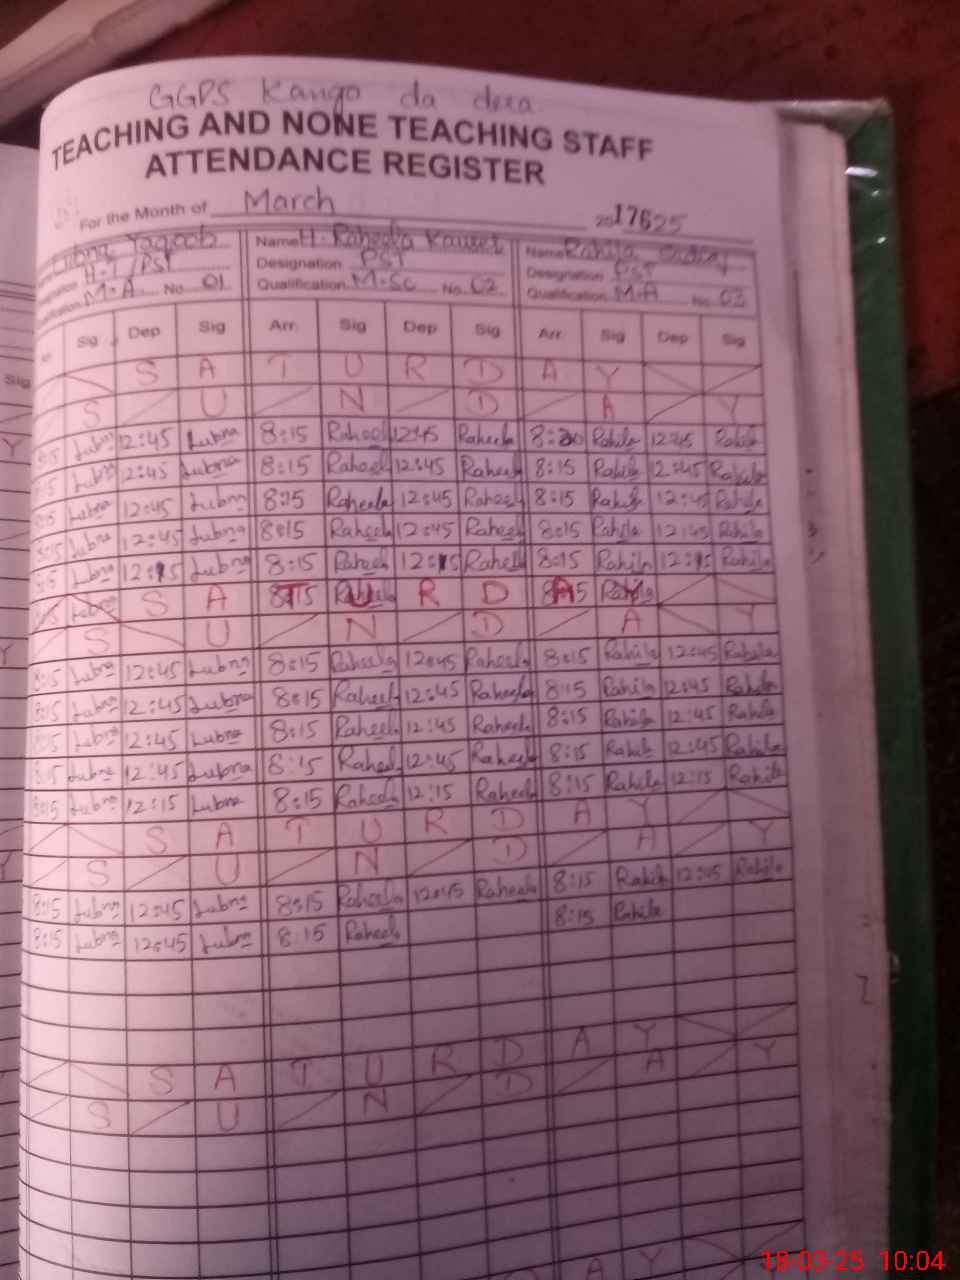 GGPS Kango da dera
TEACHING AND NONE TEACHING STAFF
ATTENDANCE REGISTER
For the Month of March 20 17625
Lubna Yaqoob Name H. Raheela Kauser Name Rahila
H.T/PST Designation PST Designation PST
M.A No 01 Qualification M.Sc No 02 Qualification M.A No 03
Sig Dep Sig Arr. Sig Dep Sig Arr. Sig Dep Sig
S A T U R D A Y
S U N D A Y
8:15 Lubna 12:45 Lubna 8:15 Raheel 12:45 Raheela Rahila 12:45 Rahila
8:15 Lubna 12:45 Lubna 8:15 Raheel 12:45 Raheela 8:15 Rahila 12:45 Rahila
8:15 Lubna 12:45 Lubna 8:15 Raheela 12:45 Raheela 8:15 Rahila 12:45 Rahila
8:15 Lubna 12:45 Lubna 8:15 Raheela 12:45 Raheela 8:15 Rahila 12:45 Rahila
8:15 Lubna 12:15 Lubna 8:15 Raheel 12:15 Raheel 8:15 Rahila 12:15 Rahila
Lubna S A T U R D A Y
S U N D A Y
8:15 Lubna 12:45 Lubna 8:15 Raheela 12:45 Raheela 8:15 Rahila 12:45 Rahila
8:15 Lubna 12:45 Lubna 8:15 Raheela 12:45 Raheela 8:15 Rahila 12:45 Rahila
8:15 Lubna 12:45 Lubna 8:15 Raheela 12:45 Raheela 8:15 Rahila 12:45 Rahila
8:15 Lubna 12:45 Lubna 8:15 Raheel 12:45 Raheela 8:15 Rahila 12:45 Rahila
8:15 Lubna 12:15 Lubna 8:15 Raheela 12:15 Raheela 8:15 Rahila 12:15 Rahila
S A T U R D A Y
S U N D A Y
8:15 Lubna 12:45 Lubna 8:15 Raheela 12:45 Raheela 8:15 Rahila 12:45 Rahila
8:15 Lubna 12:45 Lubna 8:15 Raheela 8:15 Rahila
S A T U R D A Y
S U N D A Y
A Y
18-03-25 10:04